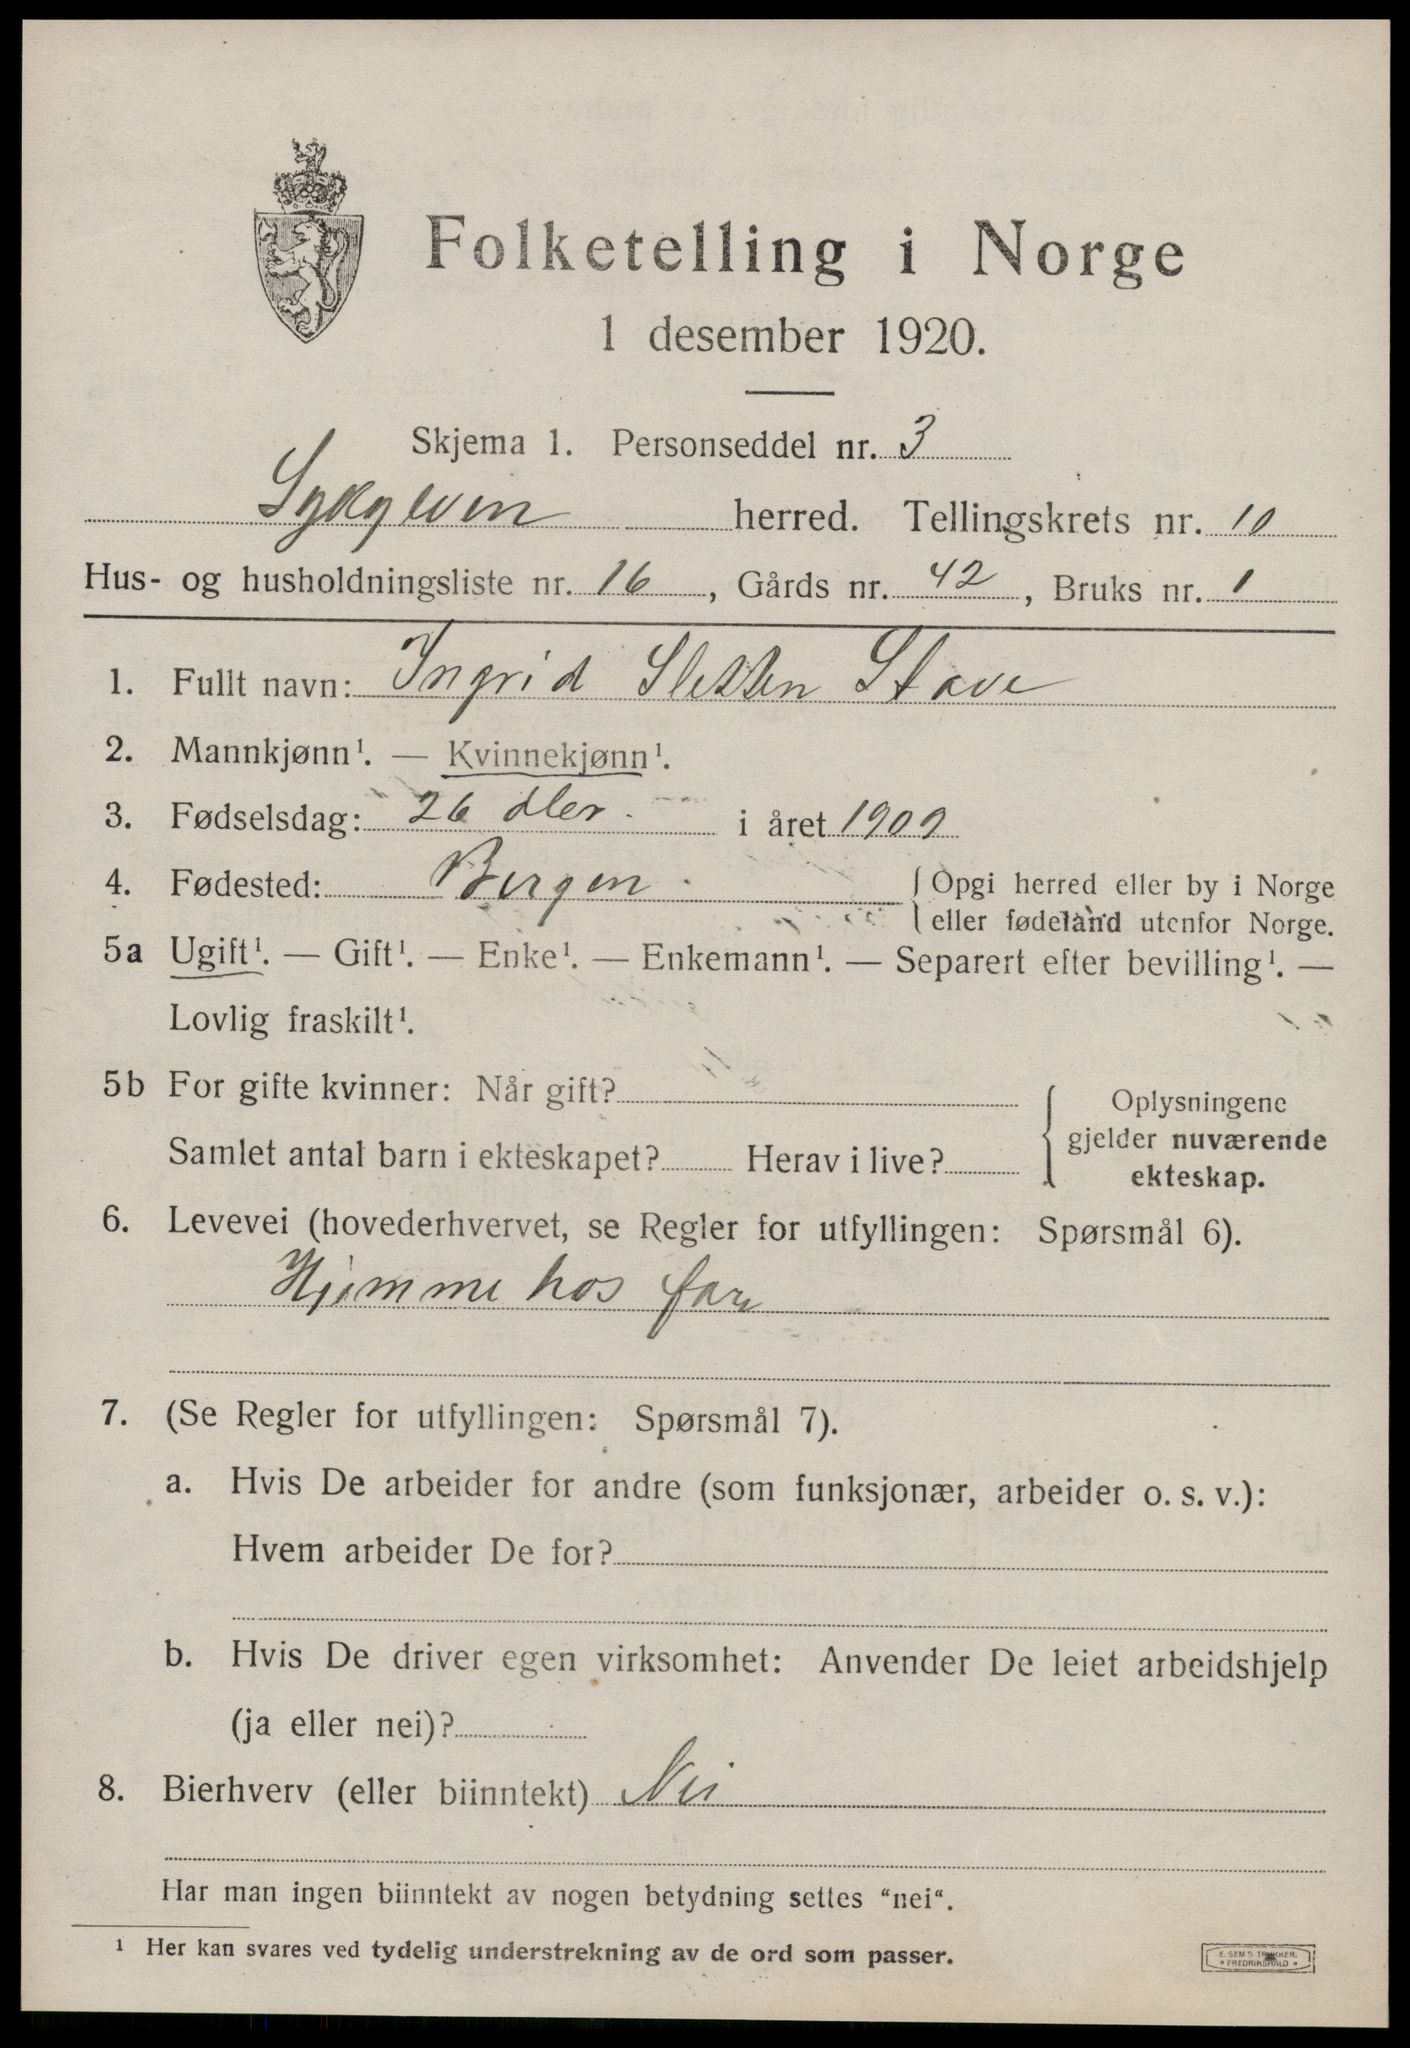 Folketelling i Norge
1 desember 1920.
Skjema 1. Personseddel nr. 3
herred. Tellingskrets nr. 10
Hus- og husholdningsliste nr. 16, Gårds nr. 42, Bruks nr. 1
1. Fullt navn: Ingrid Sletten Stave
2. Mannkjønn¹. — Kvinnekjønn¹.
3. Fødselsdag: 26 i året 1909
4. Fødested: Bergen. { Opgi herred eller by i Norge
eller fødeland utenfor Norge.
5a Ugift¹. — Gift¹. — Enke¹. — Enkemann¹. — Separert efter bevilling¹. —
Lovlig fraskilt¹.
5b For gifte kvinner: Når gift?
Samlet antal barn i ekteskapet? Herav i live?
{ Oplysningene
gjelder nuværende
ekteskap.
6. Levevei (hovederhvervet, se Regler for utfyllingen: Spørsmål 6).
Hjemme hos far
7. (Se Regler for utfyllingen: Spørsmål 7).
a. Hvis De arbeider for andre (som funksjonær, arbeider o. s. v.):
Hvem arbeider De for?
b. Hvis De driver egen virksomhet: Anvender De leiet arbeidshjelp
(ja eller nei)?
8. Bierhverv (eller biinntekt) Nei
Har man ingen biinntekt av nogen betydning settes “nei“.
¹ Her kan svares ved tydelig understrekning av de ord som passer.
E. SEM'S TRYKKERI.
* FREDRIKSHALD *